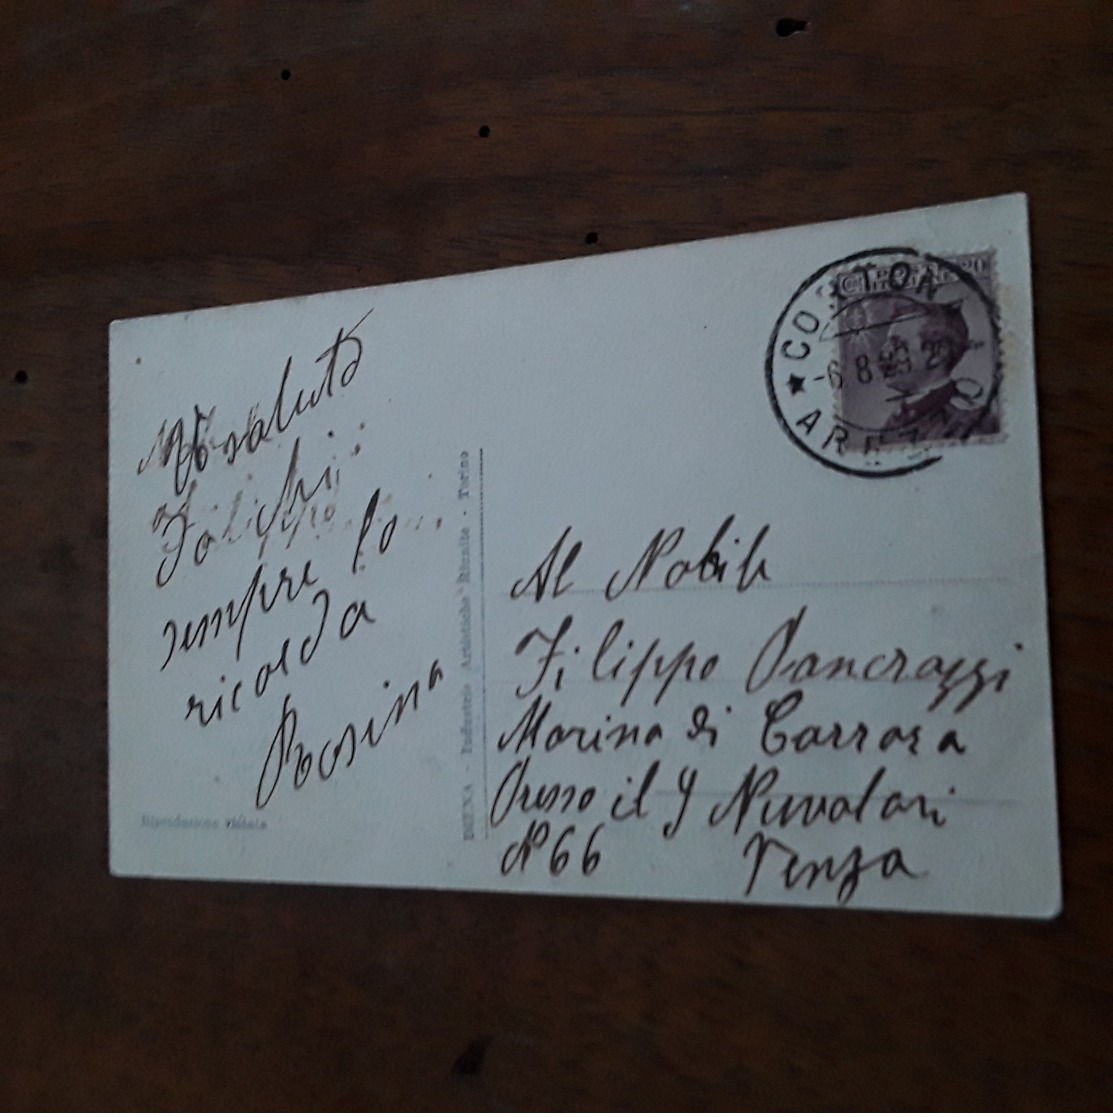 saluto
sempre lo
ricorda
Rosina
Riproduzione vietata
Industrie Artistiche Riunite - Torino
20
-6.8.29.20
AREZZO
Al Nobile
Filippo Pancrazzi
Marina di Carrara
Presso il S Nuvolari
N° 66 Venza